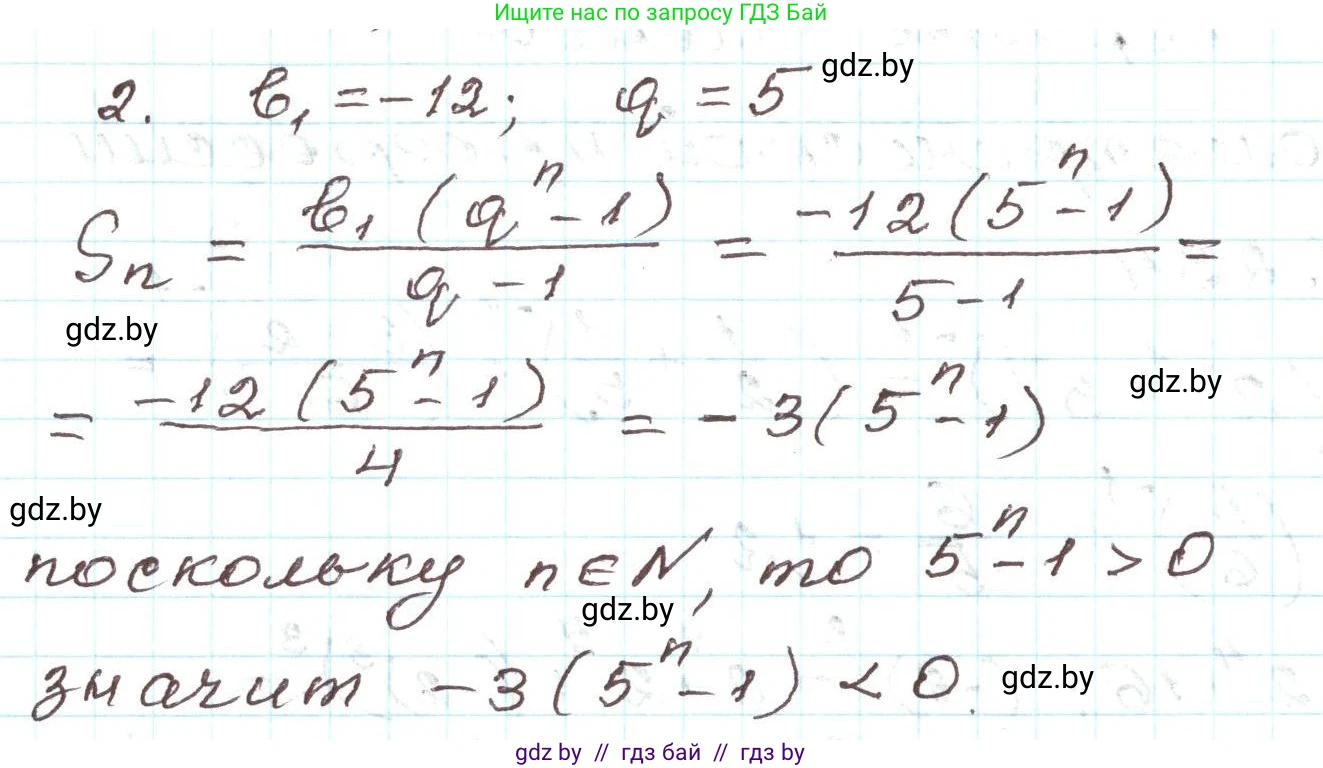 Ищите нас по запросу ГДЗ Бай
2. b₁ = -12; q = 5 gdz.by
Sₙ = b₁(qⁿ - 1) / (q - 1) = -12(5ⁿ - 1) / (5 - 1) =
gdz.by
= -12(5ⁿ - 1) / 4 = -3(5ⁿ - 1) gdz.by
gdz.by
поскольку n ∈ N, то 5ⁿ - 1 > 0
gdz.by
значит -3(5ⁿ - 1) < 0. gdz.by
gdz by // гдз бай // гдз by